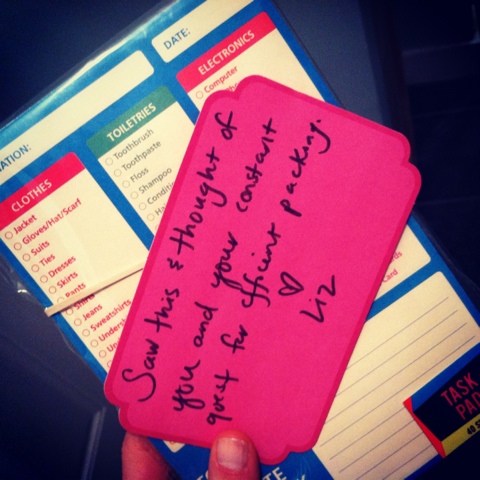 NATION:
DATE:
CLOTHES
Jacket
Gloves/Hat/Scarf
Suits
Ties
Dresses
Skirts
Pants
Jeans
Sweatshirts
TOILETRIES
Toothbrush
Toothpaste
Floss
Shampoo
ELECTRONICS
Computer
Saw this & thought of
you and your constant
quest for efficient packing.
♡
Liz
Card
TASK
PAD